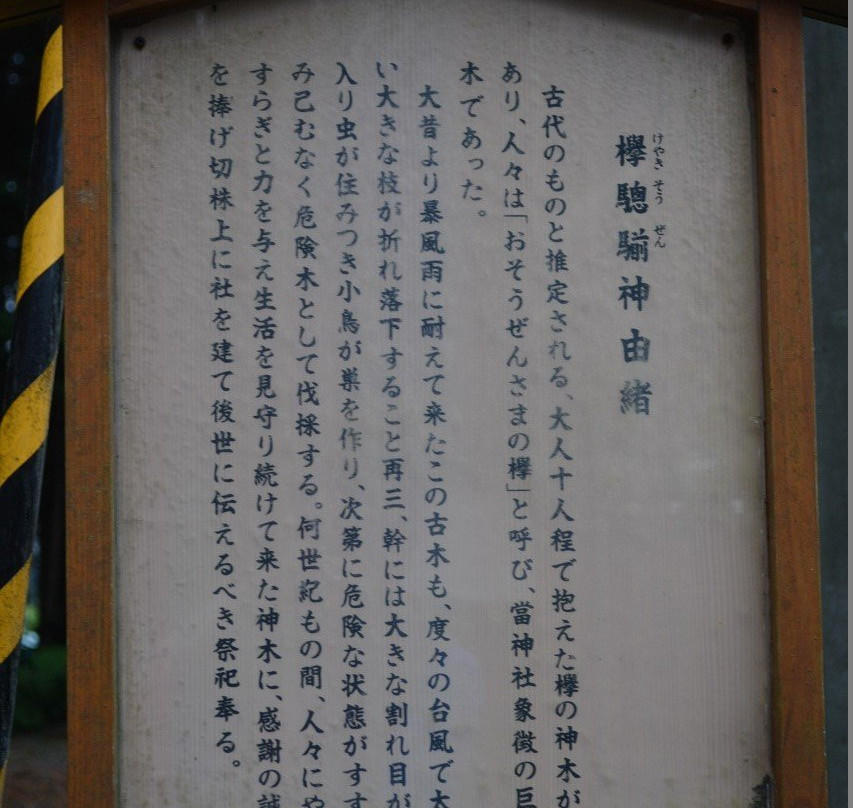 欅驄騚神由緒
けやき そう ぜん
古代のものと推定される、大人十人程で抱えた欅の神木が
あり、人々は「おそうぜんさまの欅」と呼び、當神社象徴の巨
木であった。
大昔より暴風雨に耐えて来たこの古木も、度々の台風で大
い大きな枝が折れ落下すること再三、幹には大きな割れ目が
入り虫が住みつき小鳥が巣を作り、次第に危険な状態がすす
み已むなく危険木として伐採する。何世紀もの間、人々にや
すらぎと力を与え生活を見守り続けて来た神木に、感謝の誠
を捧げ切株上に社を建て後世に伝えるべき祭祀奉る。